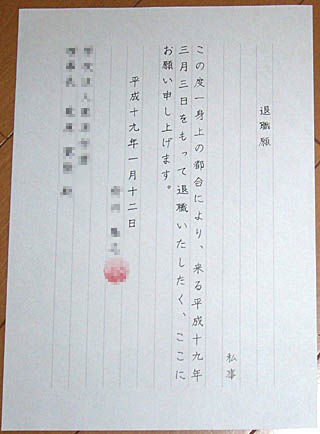 退職願
私事
この度一身上の都合により、来る平成十九年
三月三日をもって退職いたしたく、ここに
お願い申し上げます。
平成十九年一月十二日